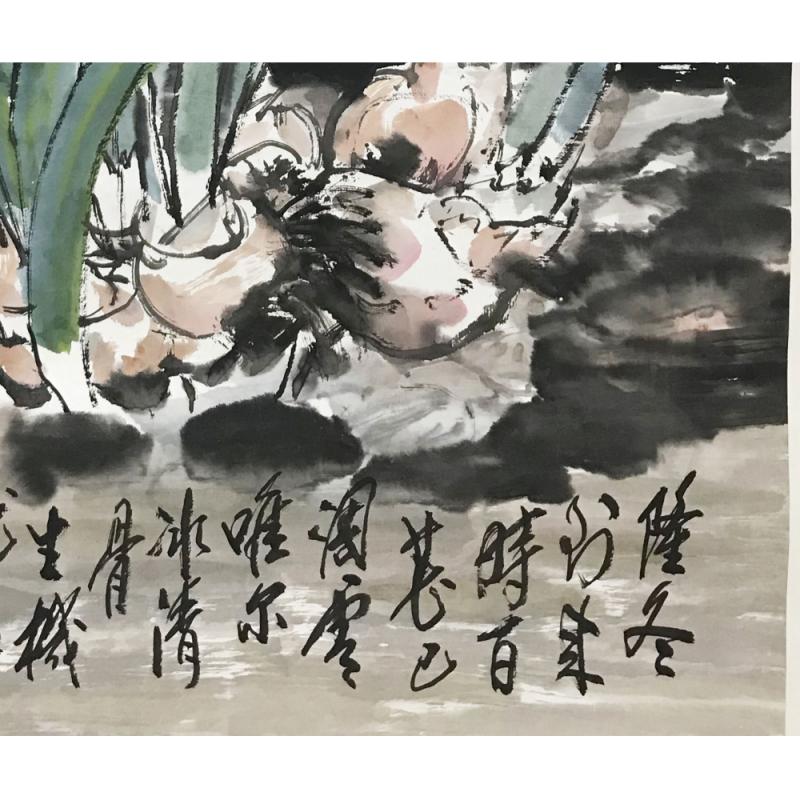 隆冬
到来
時百
花已
凋零
唯尔
冰清
骨
生機